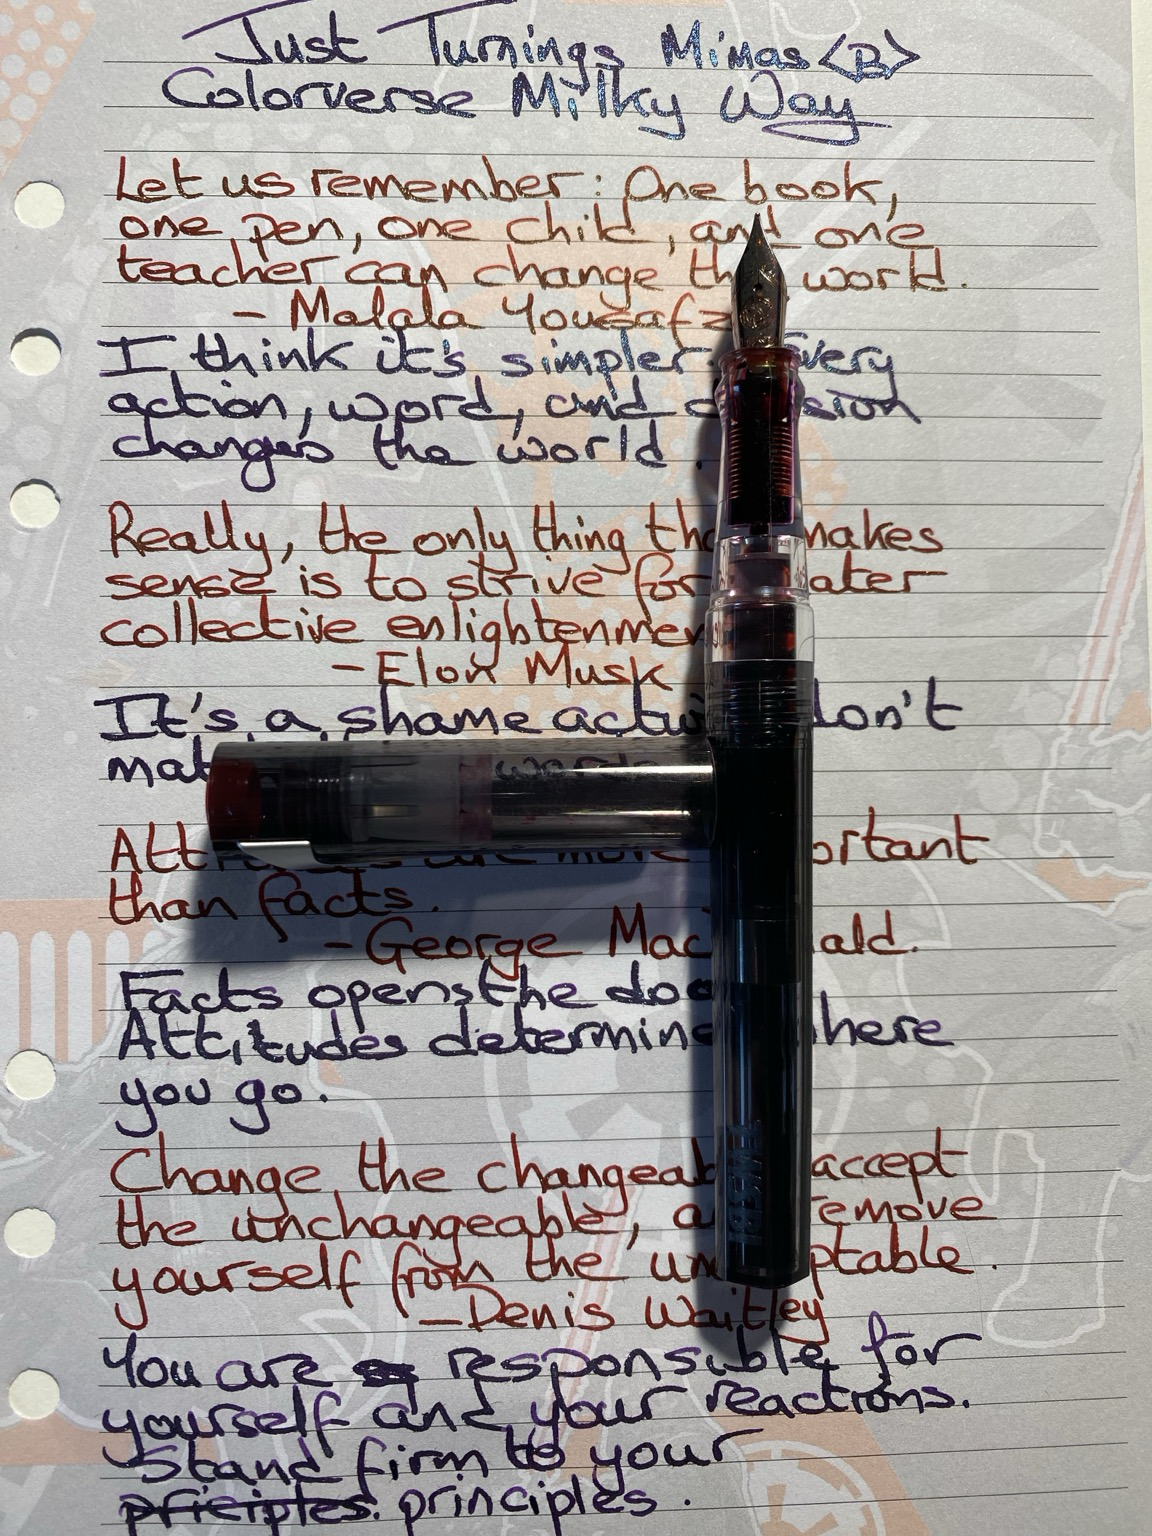 Just Turnings Mimas <B>
Colorverse Milky Way
Let us remember: One book,
one pen, one child, and one
teacher can change the world.
- Malala Yousafz
I think it's simpler. Every
action, word, and sion
changes the world.
Really, the only thing that makes
sense is to strive for ater
collective enlightenmen
- Elon Musk
It's a shame don't
mat words
Att are more ortant
than facts.
- George Mac ald.
Facts opens the doo
Attitudes determine here
you go.
Change the changeab accept
the unchangeable, a remove
yourself from the un ptable.
- Denis Waitley
You are responsible for
yourself and your reactions.
Stand firm to your
priciples. principles.
TWSBI